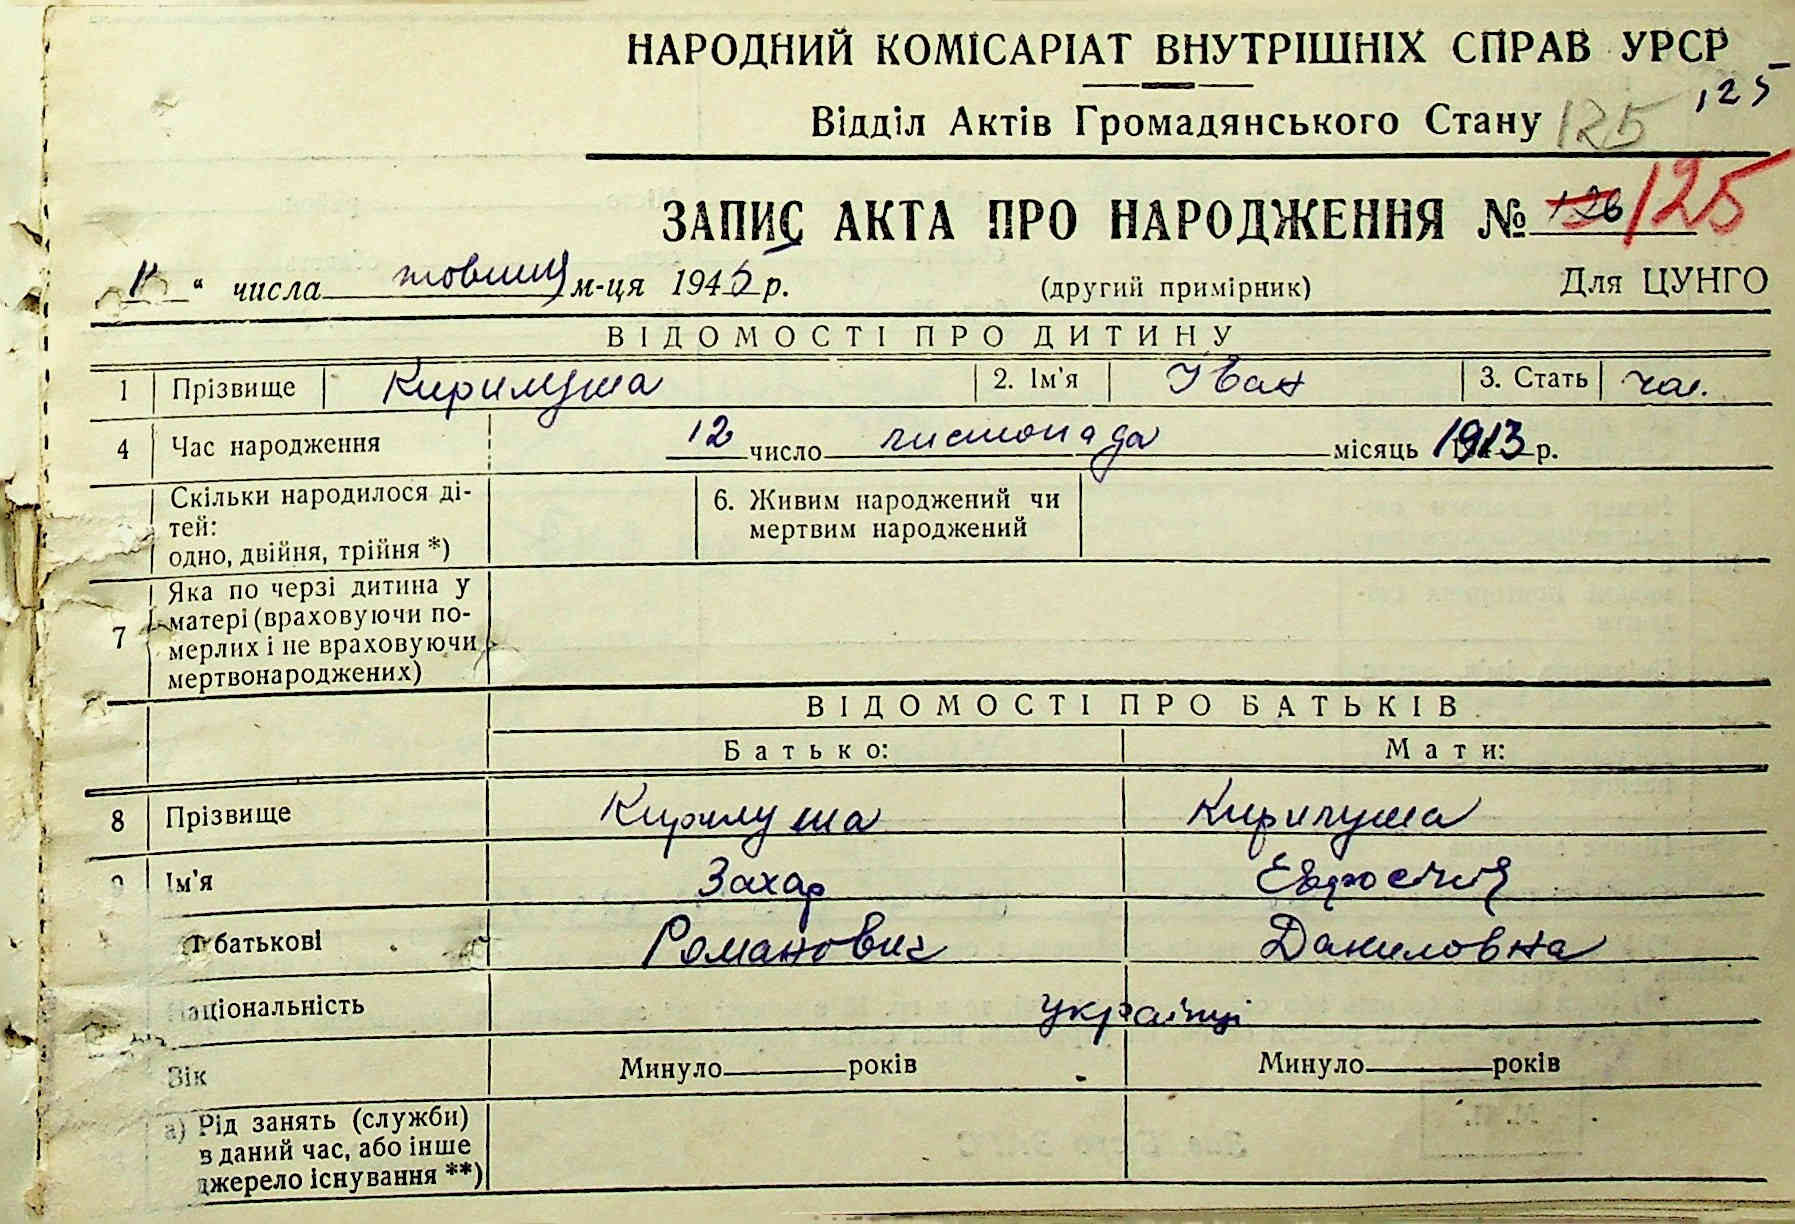 НАРОДНИЙ КОМІСАРІАТ ВНУТРІШНІХ СПРАВ УРСР
125
Відділ Актів Громадянського Стану 125
ЗАПИС АКТА ПРО НАРОДЖЕННЯ № 126 125
" числа жовтня м-ця 1945 р. (другий примірник) Для ЦУНГО
ВІДОМОСТІ ПРО ДИТИНУ
1 Прізвище Кирилуша 2. Ім'я Іван 3. Стать чол.
4 Час народження 12 число листопада місяць 1913 р.
Скільки народилося ді-
тей:
одно, двійня, трійня *)
6. Живим народжений чи
мертвим народжений
7 Яка по черзі дитина у
матері (враховуючи по-
мерлих і не враховуючи
мертвонароджених)
ВІДОМОСТІ ПРО БАТЬКІВ
Батько: Мати:
8 Прізвище Кирилуша Кирилуша
9 Ім'я Захар Евросинія
По батькові Романович Даниловна
Національність українці
Вік Минуло років Минуло років
а) Рід занять (служби)
в даний час, або інше
джерело існування **)